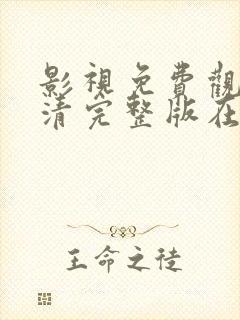 影視免費觀
清完整版在
王命之徒